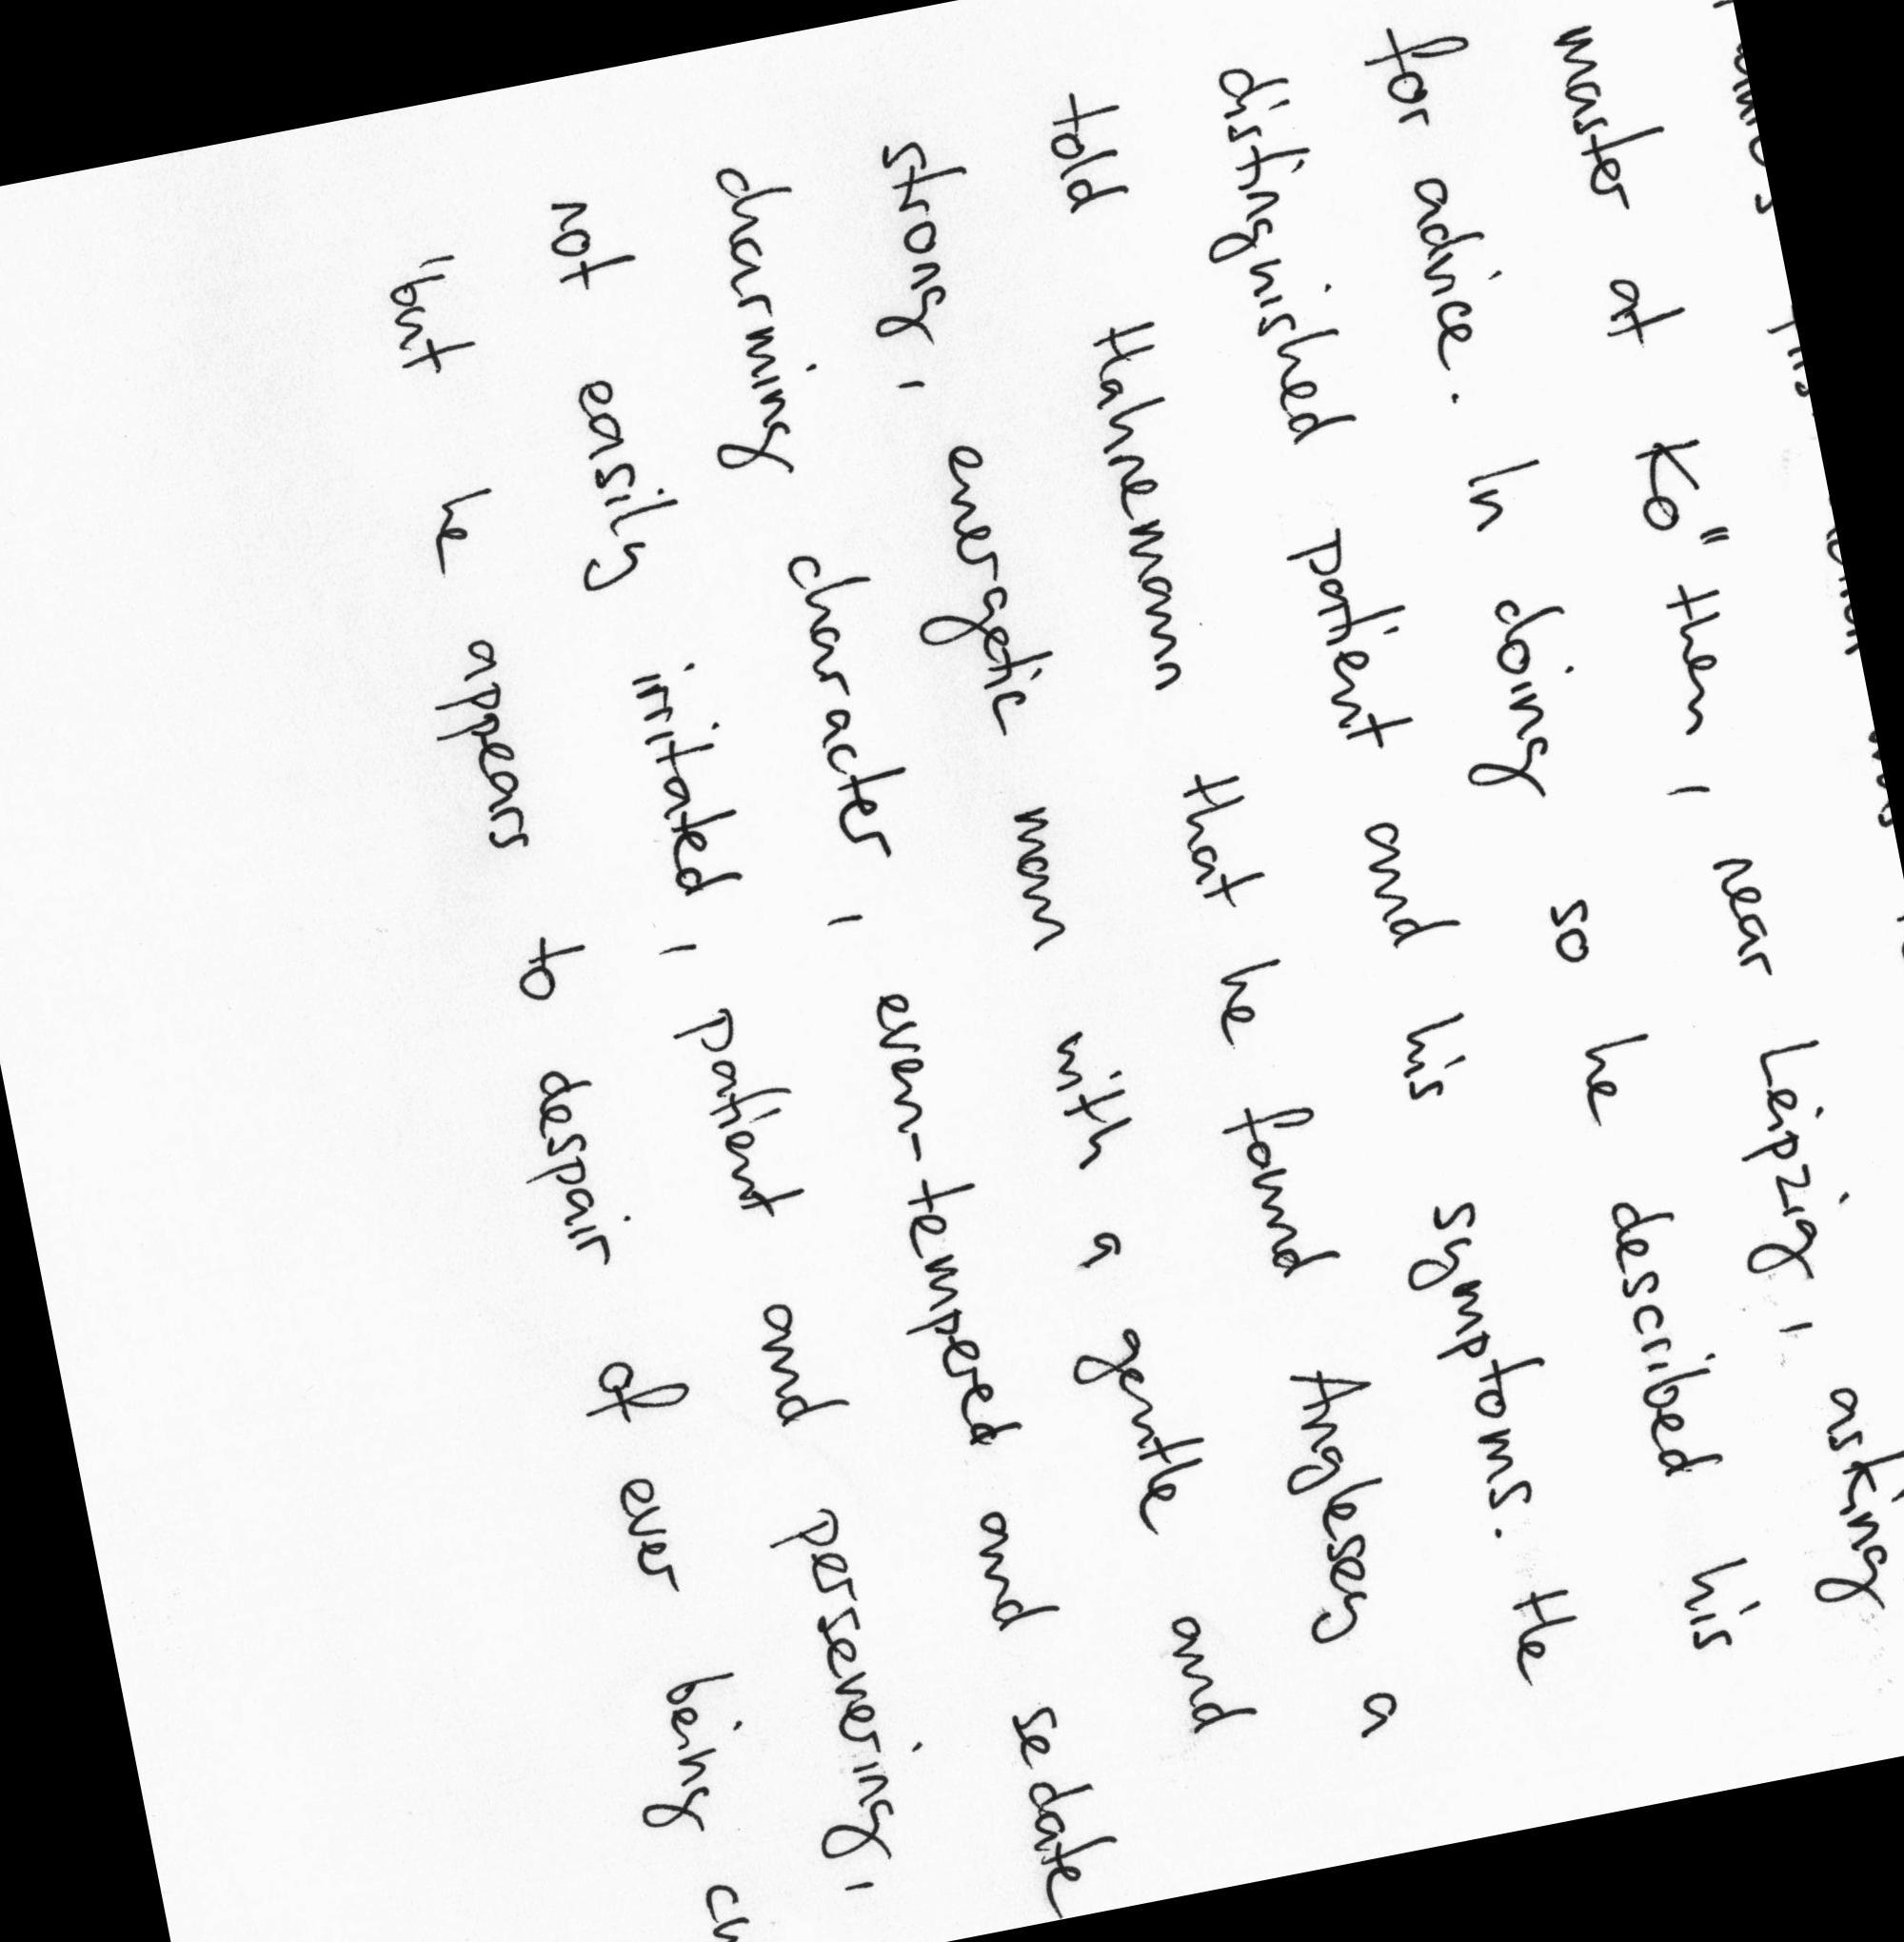 master at Kö"then, near Leipzig, asking
for advice. In doing so he described his
distinguished patient and his symptoms. He
told Hahnemann that he found Anglesey a
strong, energetic man with a gentle and
charming character, even-tempered and sedate
not easily irritated, patient and persevering,
"but he appears to despair of ever being